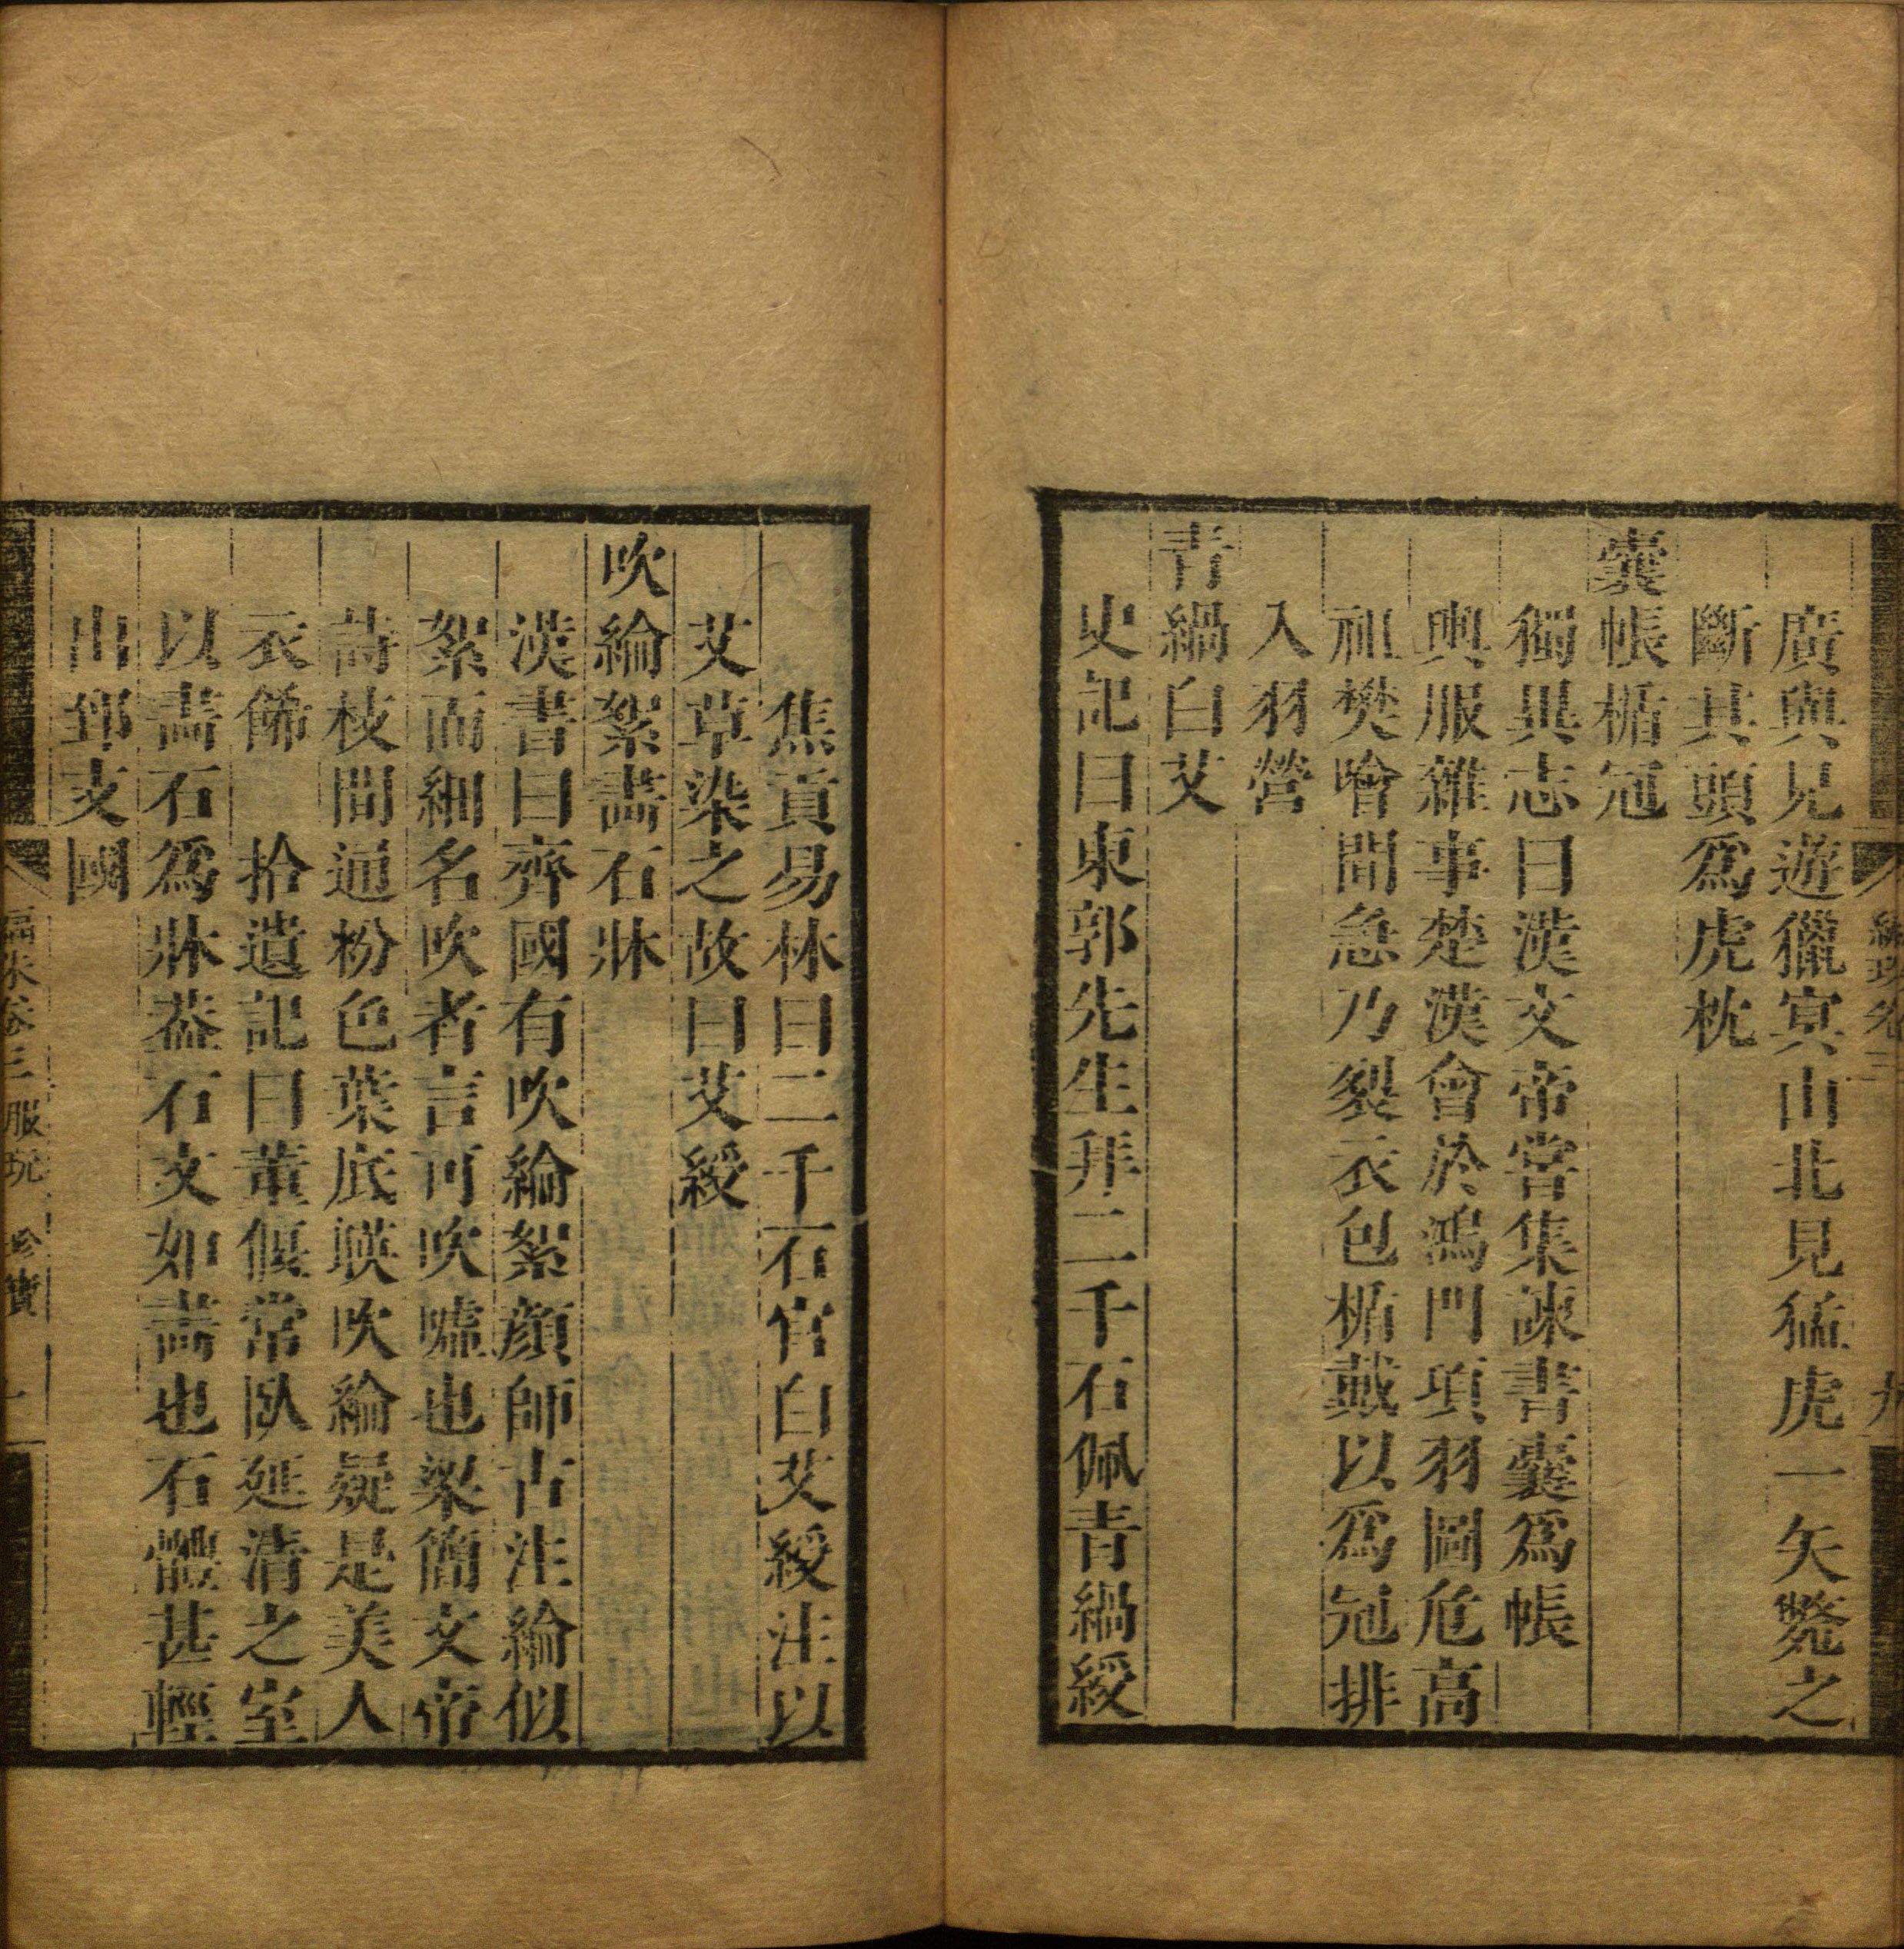 廣與兄遊獵㝠山北見猛虎一矢斃之
斷其頭爲虎枕
囊帳楯冠
獨異志曰漢文帝嘗集諫書囊爲帳
輿服雜事楚漢會於鴻門項羽圖危高
祖樊噲聞急乃裂衣包楯戴以爲冠排
入羽營
青緺白艾
史記曰東郭先生拜二千石佩青緺綬
焦貢易林曰二千石官白艾綬注以
艾草染之故曰艾綬
吹綸絮畵石牀
漢書曰齊國有吹綸絮顔師古注綸似
絮而細名吹者言可吹噓也梁簡文帝
詩枝間通粉色葉底暎吹綸疑是美人
衣俙　拾遺記曰董偃常臥延清之室
以畵石爲牀葢石文如畵也石體甚輕
出郅支國
卷三 服玩 珍寶